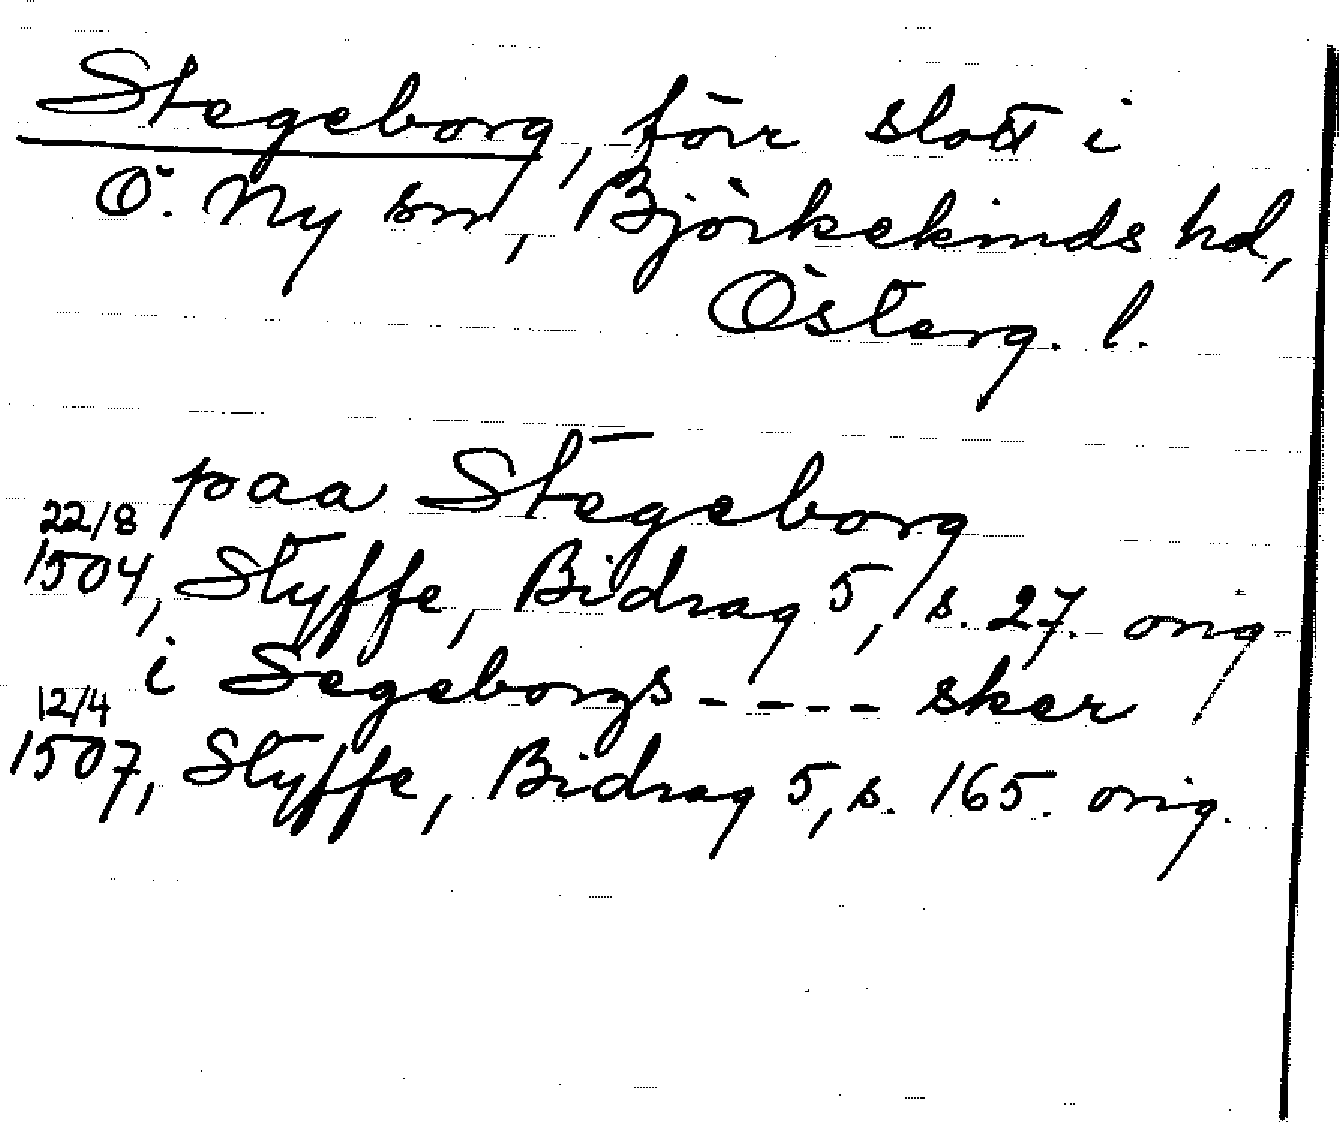 Stegeborg, förr slott i
Ö. Ny sn, Björkekinds hd,
Österg. l.
paa Stegeborg
22/8
1504, Styffe, Bidrag 5, s. 27. orig
i Segeborgs - - - - sker
12/4
1507, Styffe, Bidrag 5, s. 165. orig.